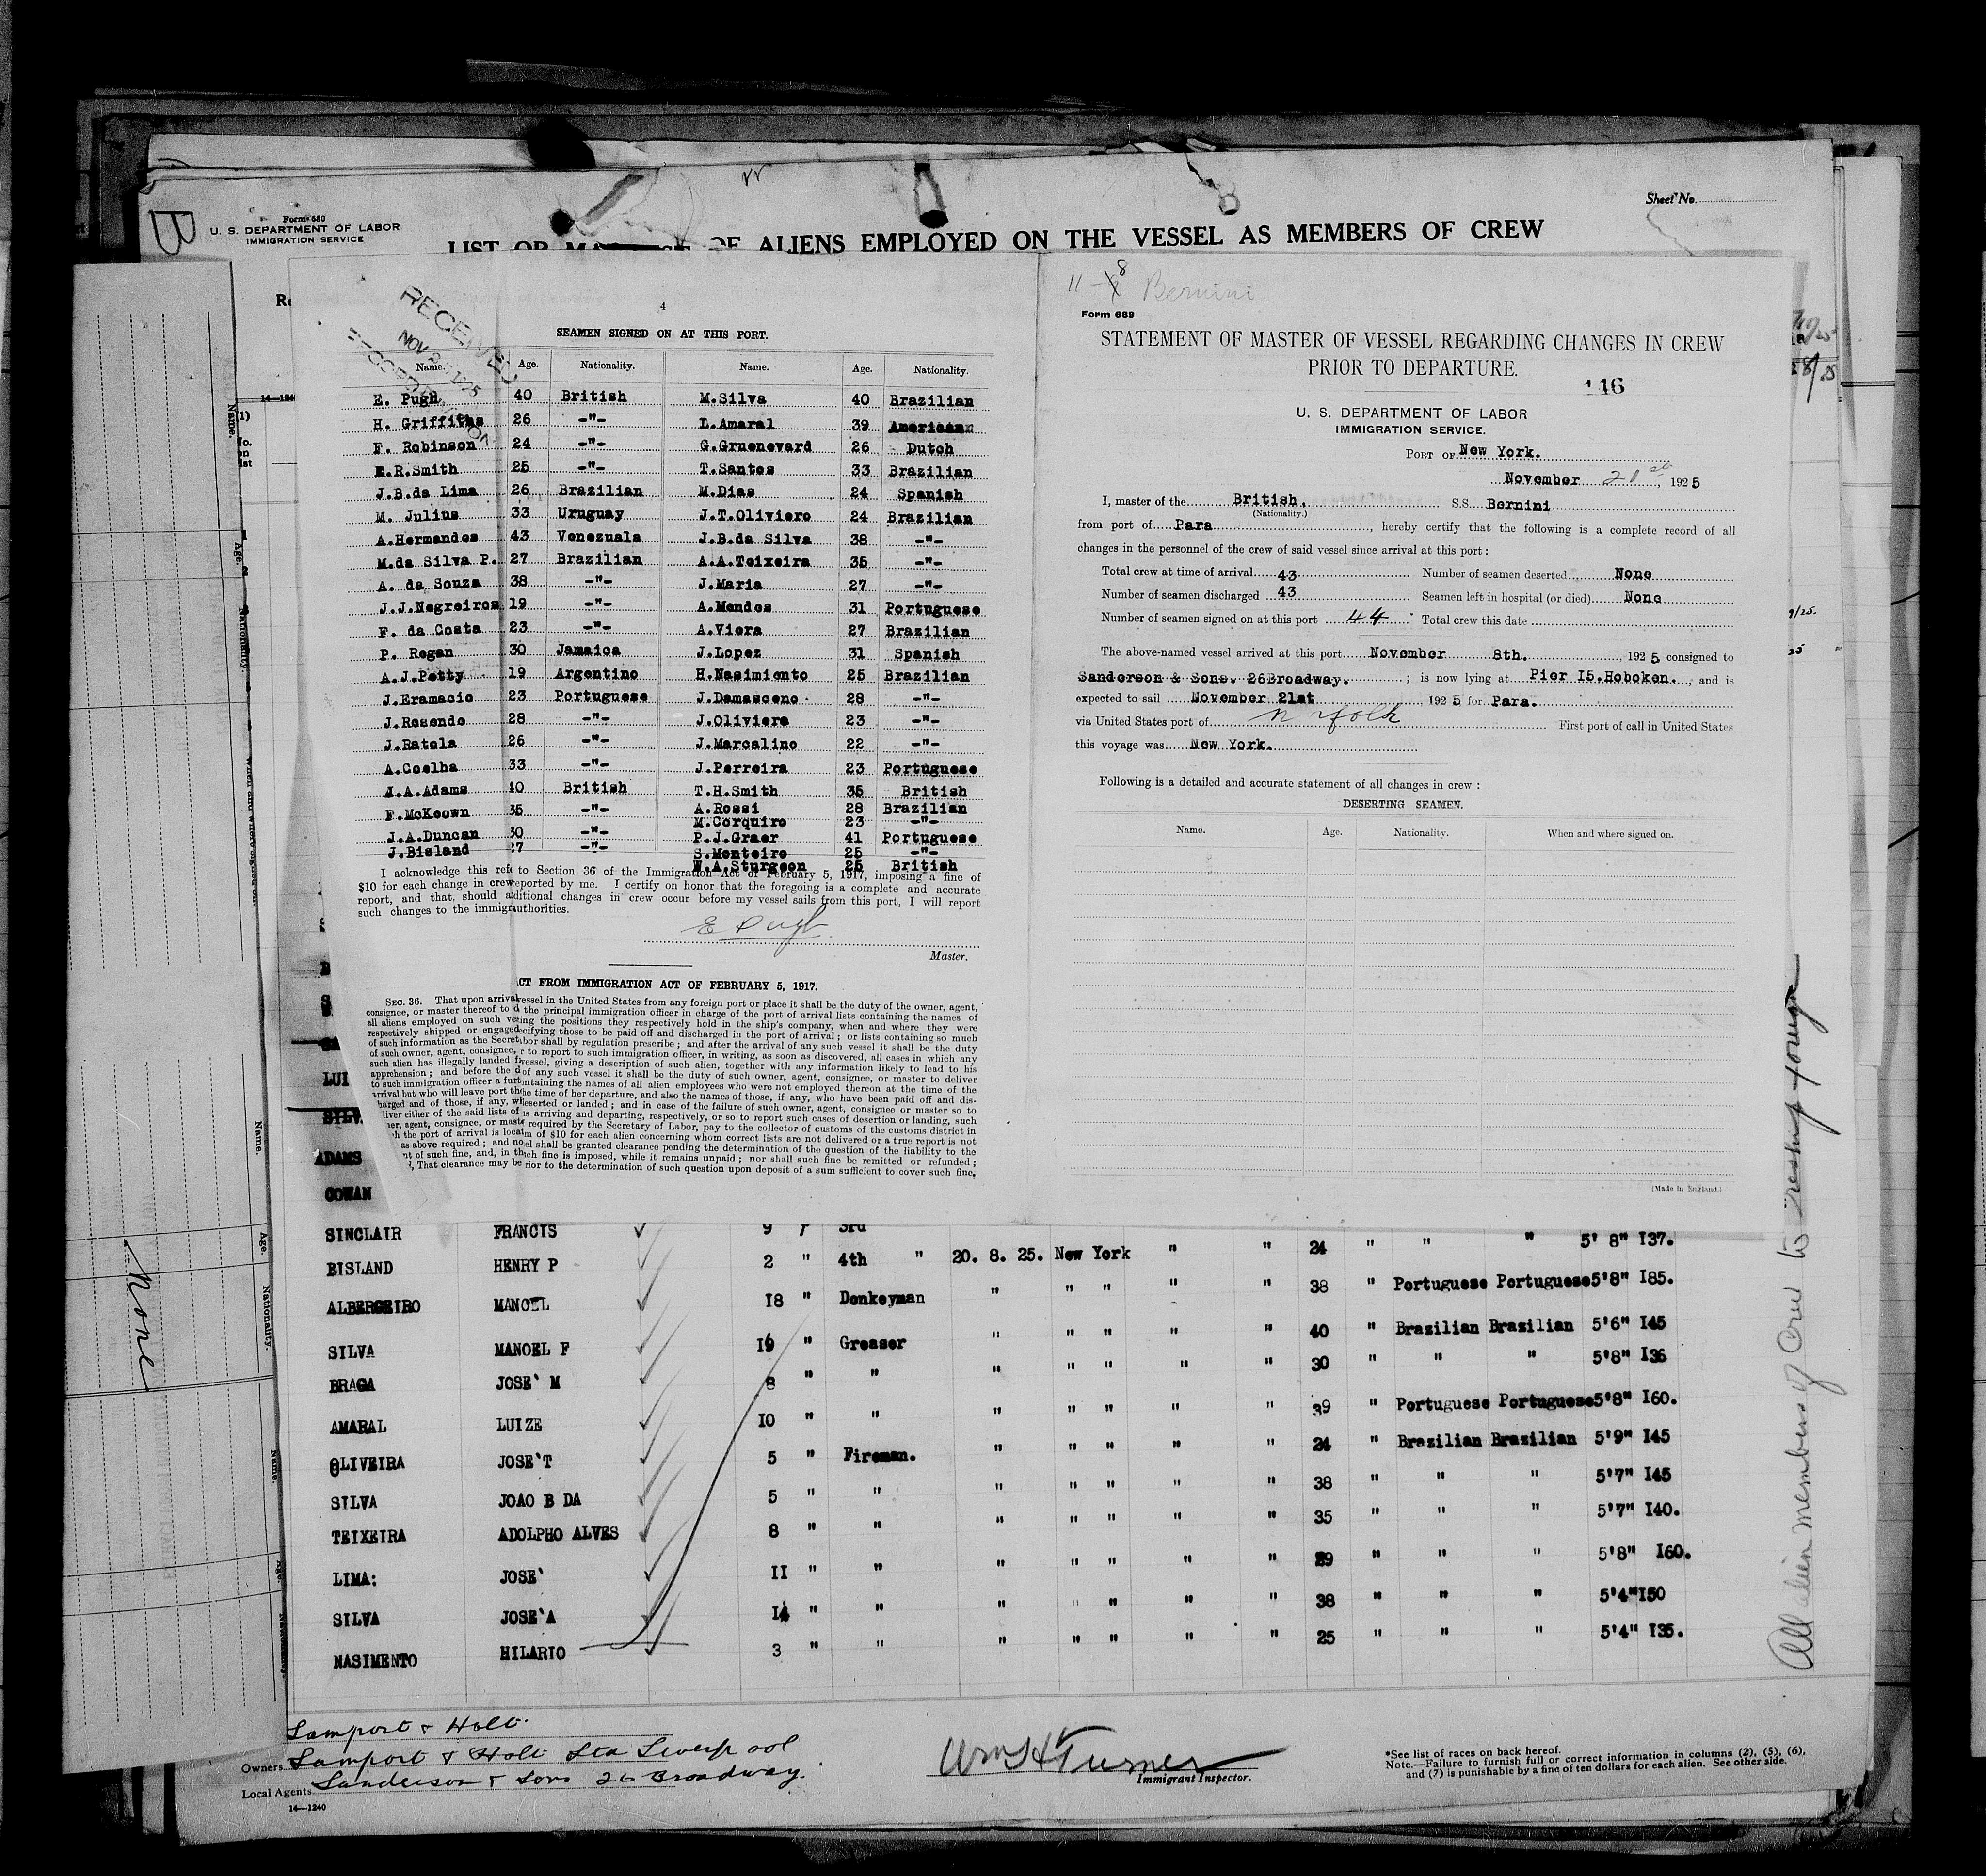 Sheet No.
Form 680
U. S. DEPARTMENT OF LABOR
IMMIGRATION SERVICE
LIST OR OF ALIENS EMPLOYED ON THE VESSEL AS MEMBERS OF CREW
4
RECEIVED
NOV
SEAMEN SIGNED ON AT THIS PORT.
Name. Age. Nationality. Name. Age. Nationality.
E. Pugh 40 British M.Silva 40 Brazilian
H. Griffiths 26 -"- L.Amaral 39 American
F. Robinson 24 -"- G.Gruenevard 26 Dutch
E.R.Smith 25 -"- T.Santos 33 Brazilian
J.B.da Lima 26 Brazilian M.Dias 24 Spanish
M. Julius 33 Uruguay J.T.Oliviero 24 Brazilian
A.Hermandes 43 Venezuala J.B.da Silva 38 -"-
M.da Silva P. 27 Brazilian A.A.Teixeira 35 -"-
A. da Souza 38 -"- J.Maria 27 -"-
J.J.Negreiros 19 -"- A.Mendes 31 Portuguese
F. da Costa 23 -"- A.Viera 27 Brazilian
P. Regan 30 Jamaica J.Lopez 31 Spanish
A.J.Petty 19 Argentino H.Nasimiento 25 Brazilian
J.Eramacio 23 Portuguese J.Damasceno 28 -"-
J.Resende 28 -"- J.Oliviera 23 -"-
J.Ratola 26 -"- J.Marcalino 22 -"-
A.Coelha 33 -"- J.Perreira 23 Portuguese
J.A.Adams 40 British T.H.Smith 35 British
F.McKeown 35 -"- A.Rossi 28 Brazilian
M.Corquiro 23 -"-
J.A.Duncan 30 -"- P.J.Graer 41 Portuguese
J.Bisland 27 -"- S.Monteiro 25 -"-
W.A.Sturgeon 25 British
I acknowledge this ref to Section 36 of the Immigration Act of February 5, 1917, imposing a fine of
$10 for each change in crew reported by me. I certify on honor that the foregoing is a complete and accurate
report, and that, should additional changes in crew occur before my vessel sails from this port, I will report
such changes to the immig authorities.
E Pugh
Master.
ACT FROM IMMIGRATION ACT OF FEBRUARY 5, 1917.
SEC. 36. That upon arrival vessel in the United States from any foreign port or place it shall be the duty of the owner, agent,
consignee, or master thereof to d the principal immigration officer in charge of the port of arrival lists containing the names of
all aliens employed on such ve ing the positions they respectively hold in the ship's company, when and where they were
respectively shipped or engaged ecifying those to be paid off and discharged in the port of arrival; or lists containing so much
of such information as the Secret abor shall by regulation prescribe; and after the arrival of any such vessel it shall be the duty
of such owner, agent, consignee, r to report to such immigration officer, in writing, as soon as discovered, all cases in which any
such alien has illegally landed f vessel, giving a description of such alien, together with any information likely to lead to his
apprehension; and before the d of any such vessel it shall be the duty of such owner, agent, consignee, or master to deliver
to such immigration officer a furt ontaining the names of all alien employees who were not employed thereon at the time of the
arrival but who will leave port th he time of her departure, and also the names of those, if any, who have been paid off and dis-
harged and of those, if any, w eserted or landed; and in case of the failure of such owner, agent, consignee or master so to
liver either of the said lists of s arriving and departing, respectively, or so to report such cases of desertion or landing, such
er, agent, consignee, or maste required by the Secretary of Labor, pay to the collector of customs of the customs district in
h the port of arrival is locat m of $10 for each alien concerning whom correct lists are not delivered or a true report is not
as above required; and no el shall be granted clearance pending the determination of the question of the liability to the
nt of such fine, and, in th ch fine is imposed, while it remains unpaid; nor shall such fine be remitted or refunded;
, That clearance may be rior to the determination of such question upon deposit of a sum sufficient to cover such fine,
11-8 Bernini
Form 689
STATEMENT OF MASTER OF VESSEL REGARDING CHANGES IN CREW
PRIOR TO DEPARTURE.
146
U. S. DEPARTMENT OF LABOR
IMMIGRATION SERVICE.
PORT OF New York.
November 21st, 1925
I, master of the British, S.S. Bernini
(Nationality.)
from port of Para, hereby certify that the following is a complete record of all
changes in the personnel of the crew of said vessel since arrival at this port:
Total crew at time of arrival 43 Number of seamen deserted None
Number of seamen discharged 43 Seamen left in hospital (or died) None
Number of seamen signed on at this port 44 Total crew this date
The above-named vessel arrived at this port November 8th., 1925 consigned to
Sanderson & Sons. 26Broadway.; is now lying at Pier 15.Hoboken., and is
expected to sail November 21st, 1925 for Para.
via United States port of Norfolk First port of call in United States
this voyage was New York.
Following is a detailed and accurate statement of all changes in crew:
DESERTING SEAMEN.
Name. Age. Nationality. When and where signed on.
(Made in England.)
LUI
SILV
ADAMS
COWAN
SINCLAIR FRANCIS 9 3rd
BISLAND HENRY P 2 " 4th " 20. 8. 25. New York " " 24 " " " 5' 8" I37.
ALBERGEIRO MANOEL I8 " Donkeyman " " " " " 38 " Portuguese Portuguese 5'8" I85.
SILVA MANOEL F I9 " Greaser " " " " " 40 " Brazilian Brazilian 5'6" I45
BRAGA JOSE' M 8 " " " " " " " 30 " " " 5'8" I36
AMARAL LUIZE I0 " " " " " " " 39 " Portuguese Portuguese 5'8" I60.
OLIVEIRA JOSE'T 5 " Fireman. " " " " " 24 " Brazilian Brazilian 5'9" I45
SILVA JOAO B DA 5 " " " " " " " 38 " " " 5'7" I45
TEIXEIRA ADOLPHO ALVES 8 " " " " " " " 35 " " " 5'7" I40.
LIMA: JOSE' II " " " " " " " 39 " " " 5'8" I60.
SILVA JOSE'A I4 " " " " " " " 38 " " " 5'4" I50
NASIMENTO HILARIO 3 " " " " " " " 25 " " " 5'4" I35.
Lamport & Holt.
Owners Lamport & Holt Ltd Liverpool
Local Agents Sanderson & Sons 26 Broadway.
14—1240
Wm H Turner
Immigrant Inspector.
*See list of races on back hereof.
Note.—Failure to furnish full or correct information in columns (2), (5), (6),
and (7) is punishable by a fine of ten dollars for each alien. See other side.
All alien members of crew to reship foreign
Name. Age. Nationality.
Name. Age. Nationality.
Name. Age.
None